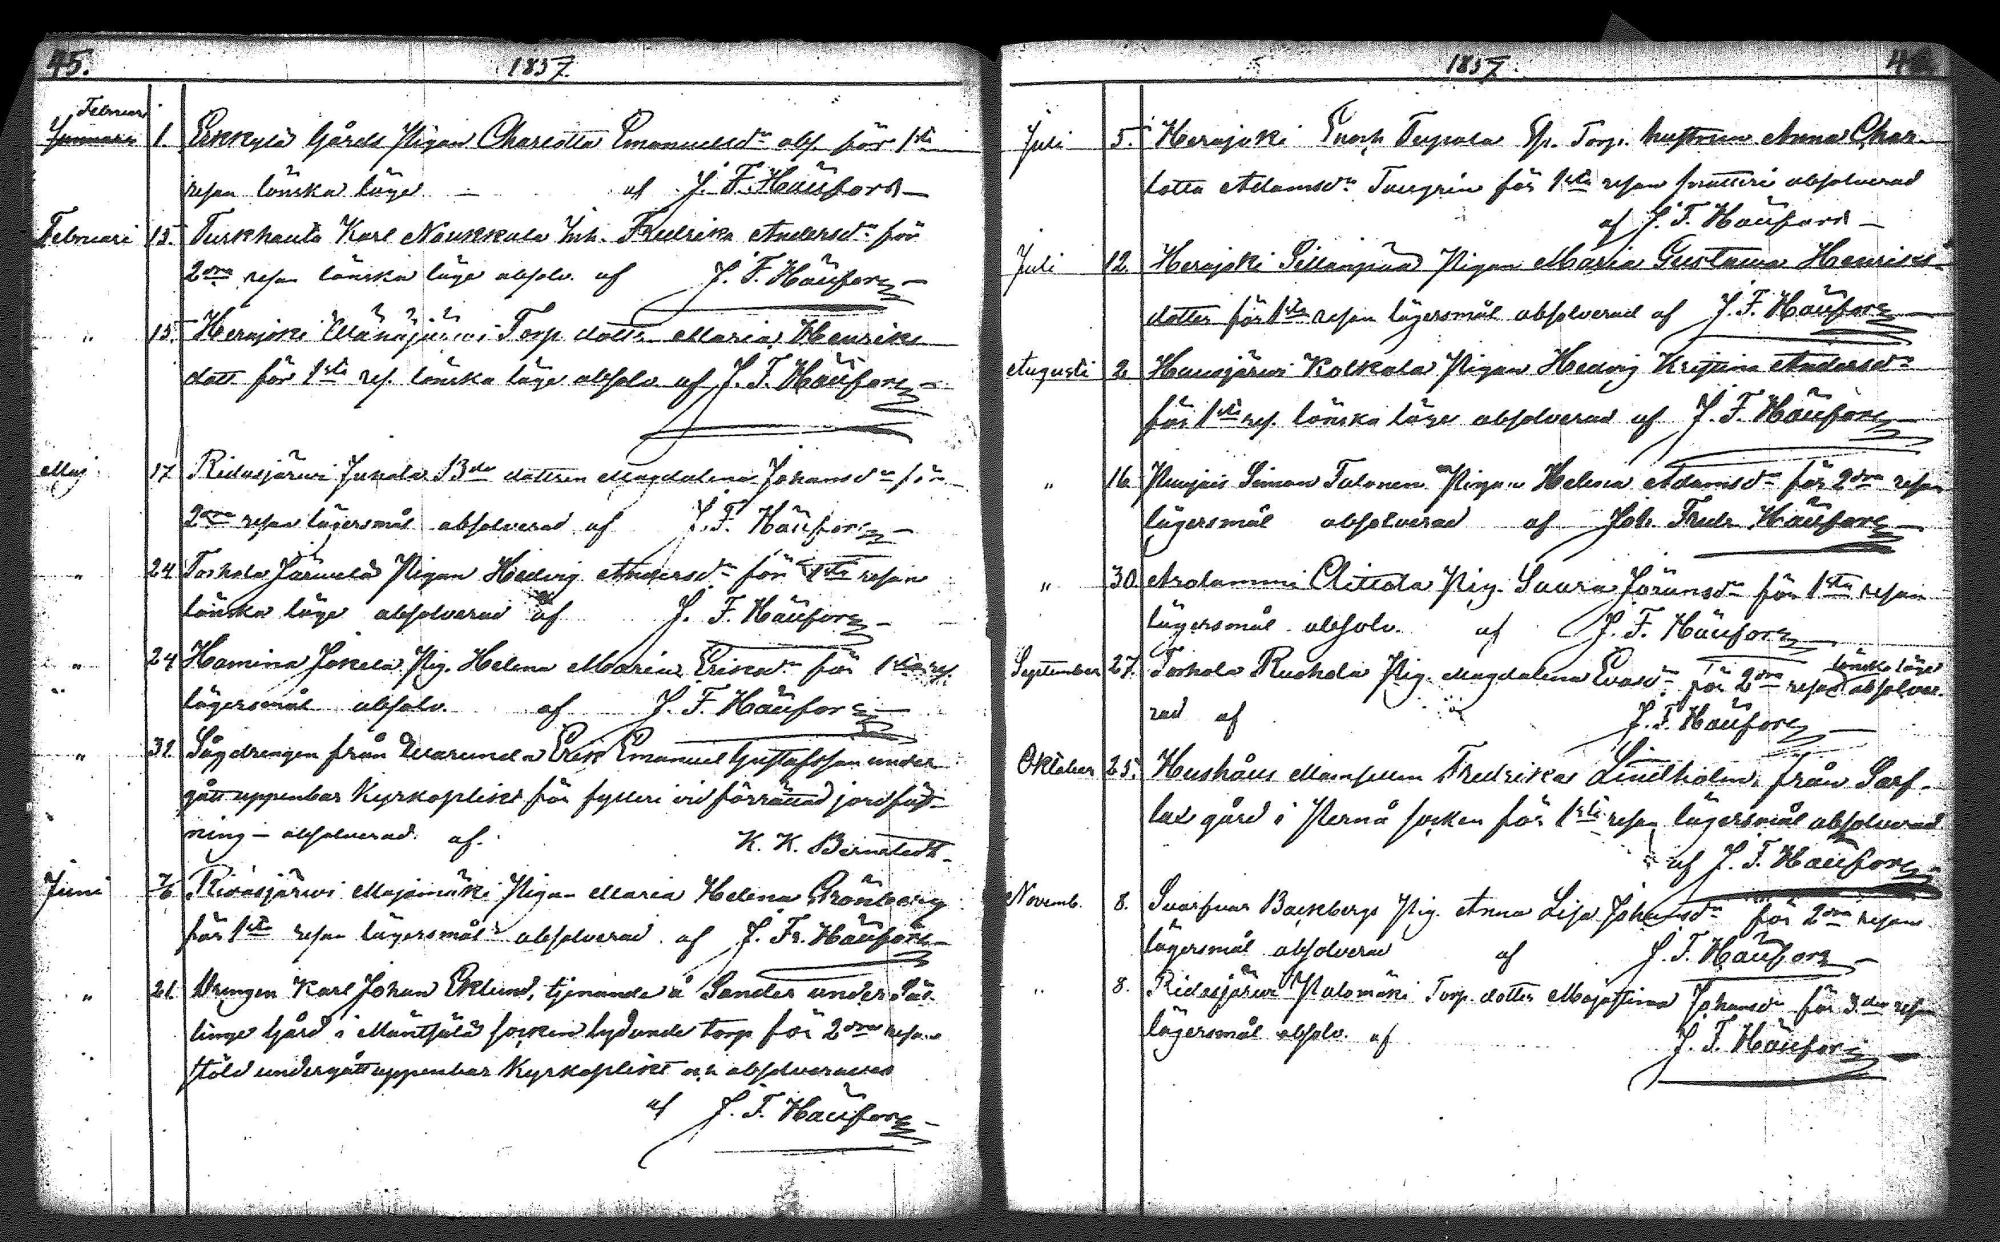 45.
1857.
Februari
Januari 1. Erkkylä Gårds Pigan Charlotta Emanuelsdr abs. för 1sta
resan lönska läge — af J. F. Häufors
Februari 15. Turkhauta Karl Naukkala Inh. Fredrika Andersdr för
2dra resan lönska läge absolv. af J. F. Häufors
" 15. Herajoki Torp. dottr. Maria Henriks
dott. för 1sta res. lönska läge absolv. af J. F. Häufors
Maj 17 Ridasjärwi Jukola Bdr dottren Magdalena Johansdr för
2dra resan lägersmål absolverad af J. F. Häufors
" 24 Torhola Järwelä Pigan Hedvig Andersdr för 1sta resan
lönska läge absolverad af J. F. Häufors
" 24 Hamina Jokela Pig. Helena Maria Eriksdr för 1sta res.
" lägersmål absolv. af J. F. Häufors
" 31. Sågdrengen från Erik Emanuel Gustafsson under
gått uppenbar Kyrkoplikt för fylleri vid förrättad jordfäst-
ning — absolverad af. K. K. Bernstedt.
Juni 7/6 Ridasjärwi Majamäki Pigan Maria Helena Grönberg
för 1sta resan lägersmål absolverad af J. Fr. Häufors
" 21. Drengen Karl Johan Eklund, tjenande å Sander under Säl
linge Gård i Mäntsälä socken lydande torp för 2dra resan
stöld undergått uppenbar Kyrkoplikt och absolverades
af J. F. Häufors
1857.
46
Juli 5. Herajoki Enoch Tupala Torp. hustrun Anna Char-
lotta Adamsdr för 1sta resan snatteri absolverad
af J. F. Häufors
Juli 12. Herajoki Sillanpää Pigan Maria Gustawa Henriks-
dotter för 1sta resan lägersmål absolverad af J. F. Häufors
Augusti 2 Hausjärwi Kolkala Pigan Hedvig Kristina Andersdr
för 1sta res. lönska läge absolverad af J. F. Häufors
" 16 Simon Talonen Pigan Helena Adamsdr för 2dra resan
lägersmål absolverad af Joh. Fredr. Häufors
" 30. Arolammi Pig. Laura Göransdr för 1sta resan
lägersmål absolv. af J. F. Häufors
September 27. Torhola Ruohola Pig. Magdalena Evasdr för 2dra resan lönska läge absolve-
rad af J. F. Häufors
Oktober 25. Hushåls Mamsellen Fredrika Lindholm, från Sarf-
lax gård i Pernå socken för 1sta resan lägersmål absolverad
af J. F. Häufors
Novemb. 8. Backbergs Pig. Anna Lisa Johansdr för 2dra resan
lägersmål absolverad af J. F. Häufors
" 8. Ridasjärwi Palomäki Torp. dotter Majastina Johansdr för 3dje resan
lägersmål absolv. af J. F. Häufors